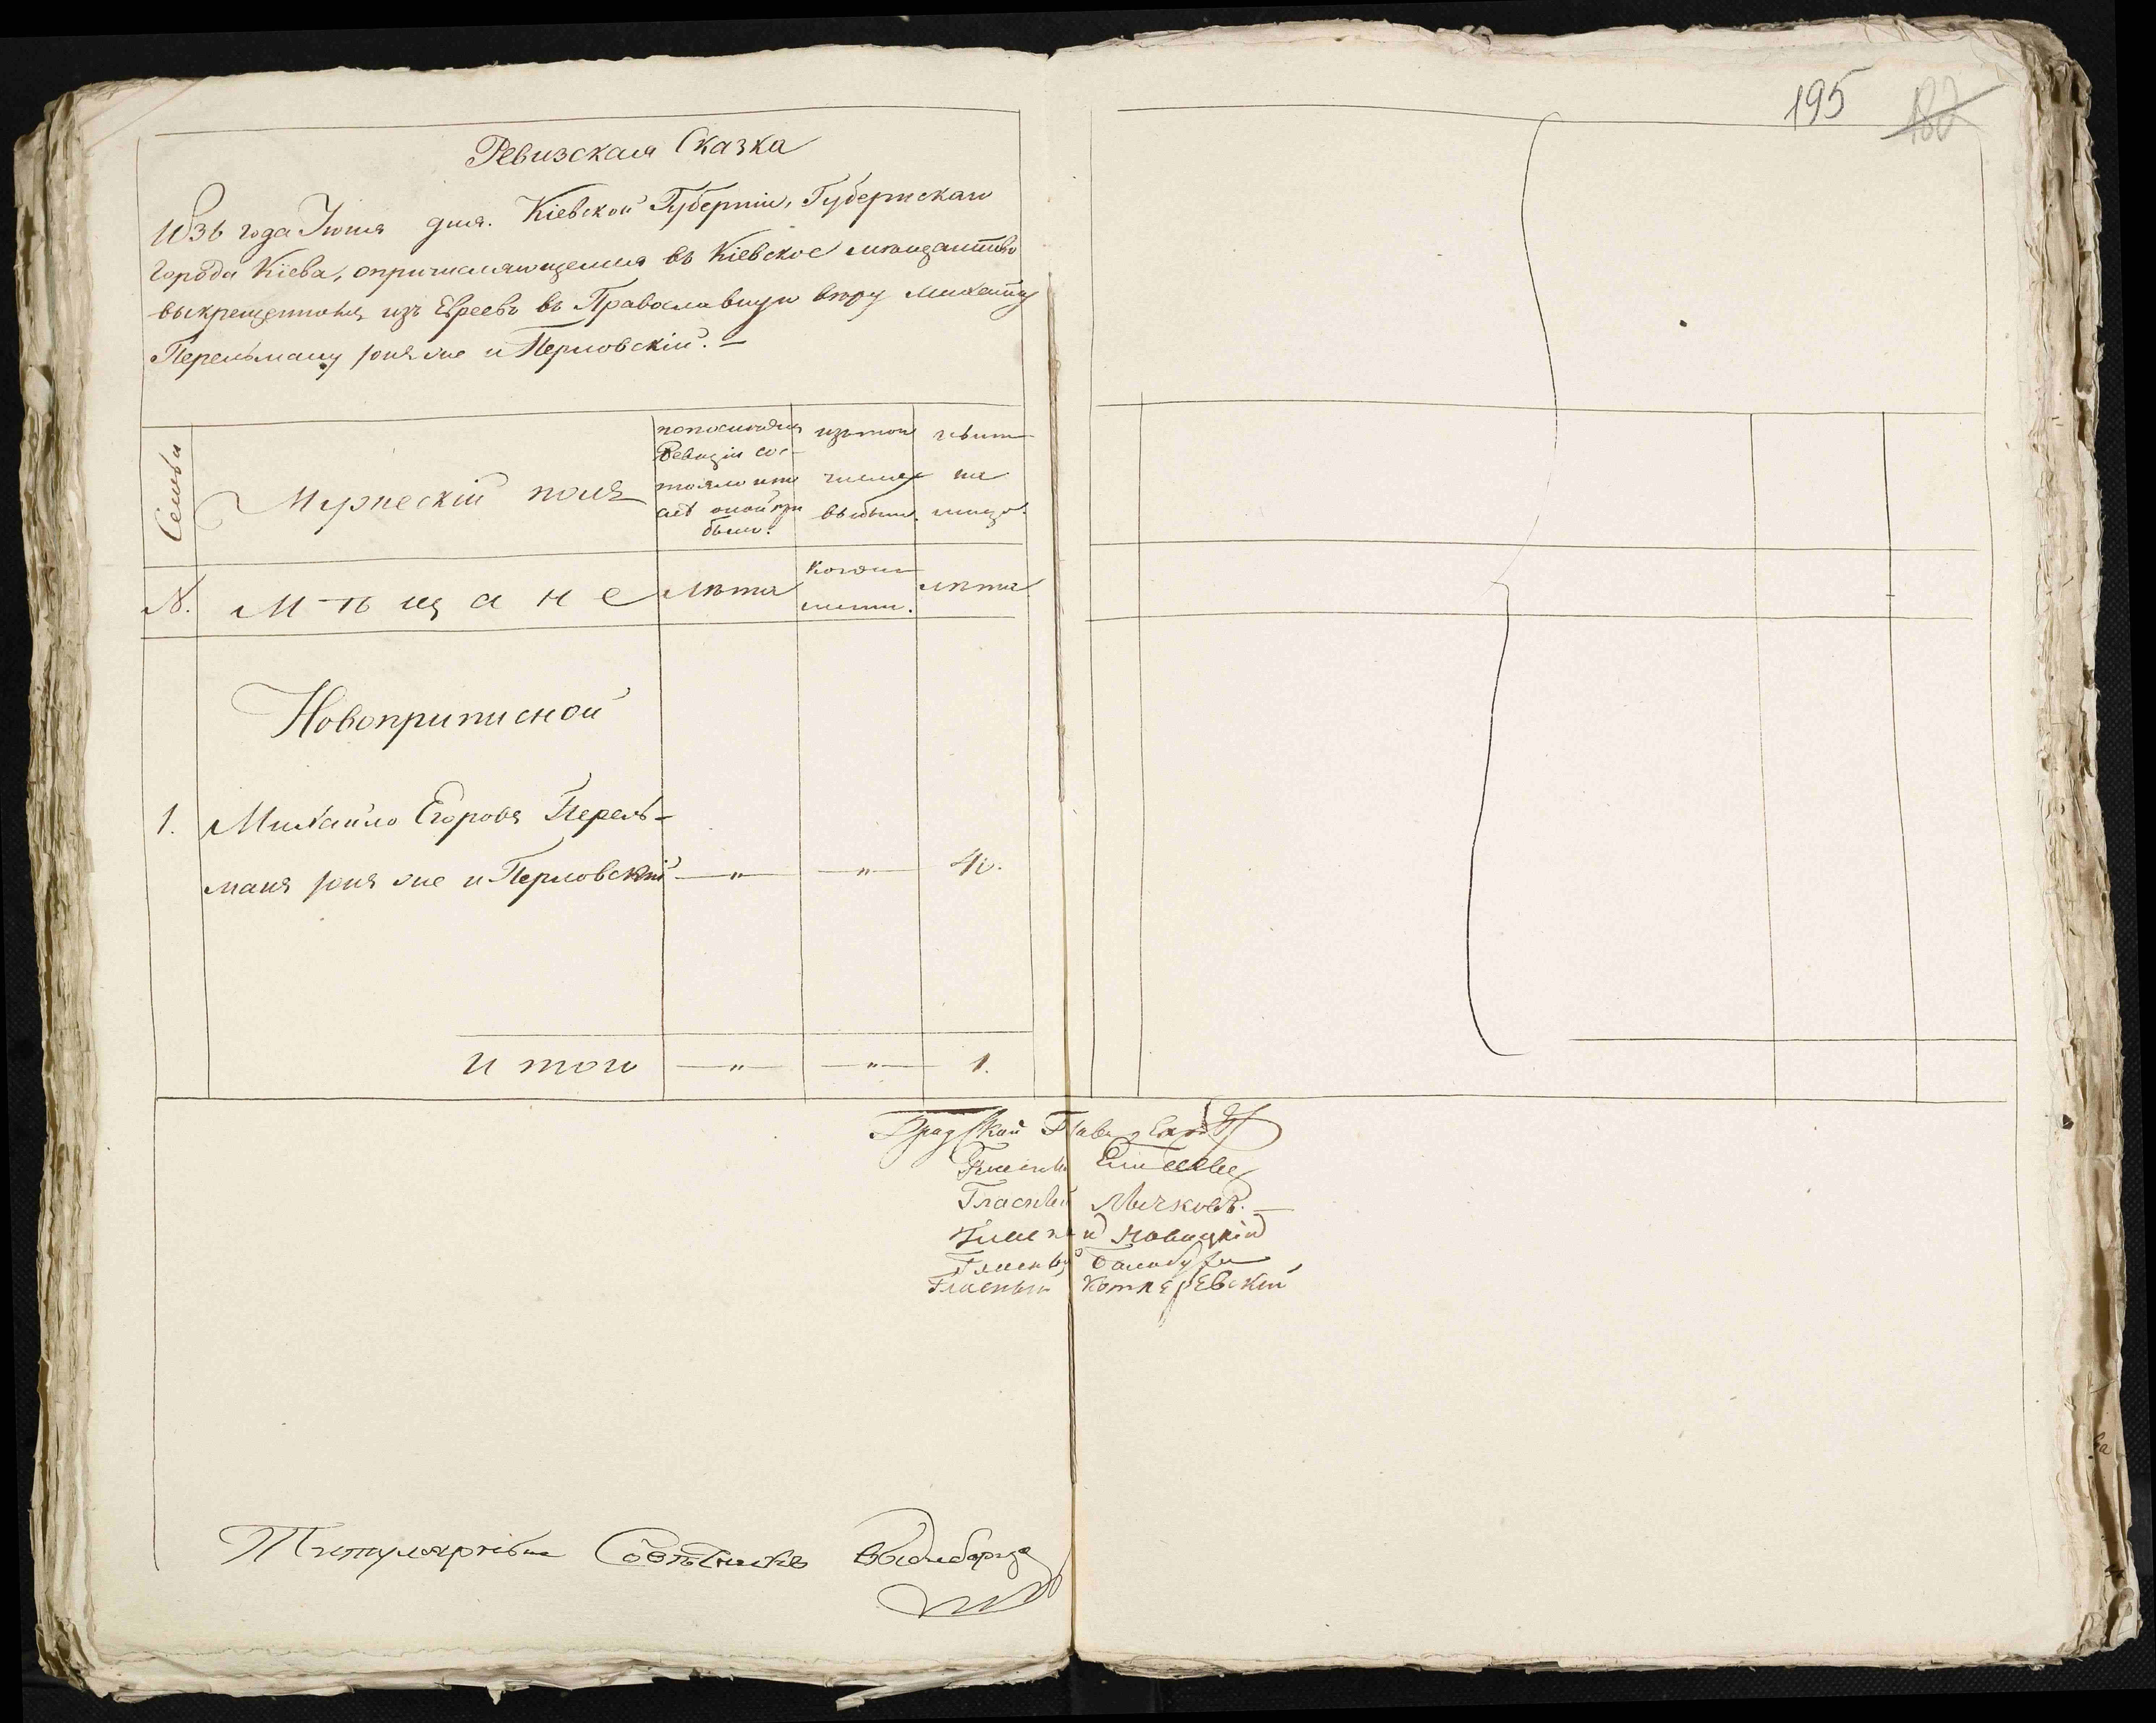 195
Ревизская Сказка
1836 года Іюня дня. Кіевской Губерніи, Губернскаго
Города Кіева, о причисляющемся въ Кіевское мѣщанство
выкрещенномъ изъ Евреевъ въ Православную вѣру Михайлу
Перельману онъ же и Перловскій. —
Семьи
Мужескій полъ
по последней
Ревизіи сос-
тояло и по-
слѣ оной при
было.
изъ того
числа
выбыло.
нынѣ
на
лицо.
№.
Мѣщане
Лѣта
Когда
именно.
лѣта
Новоприписной
1. Михайло Егоровъ Перель-
манъ онъ же и Перловскій — „ — — „ — 40.
Итого — „ — — „ — 1.
Градской Глава
Гласный
Гласный Лычковъ. —
Гласный Новицкій
Гласный Балабуха
Гласный Котляревскій
Титулярный Совѣтникъ